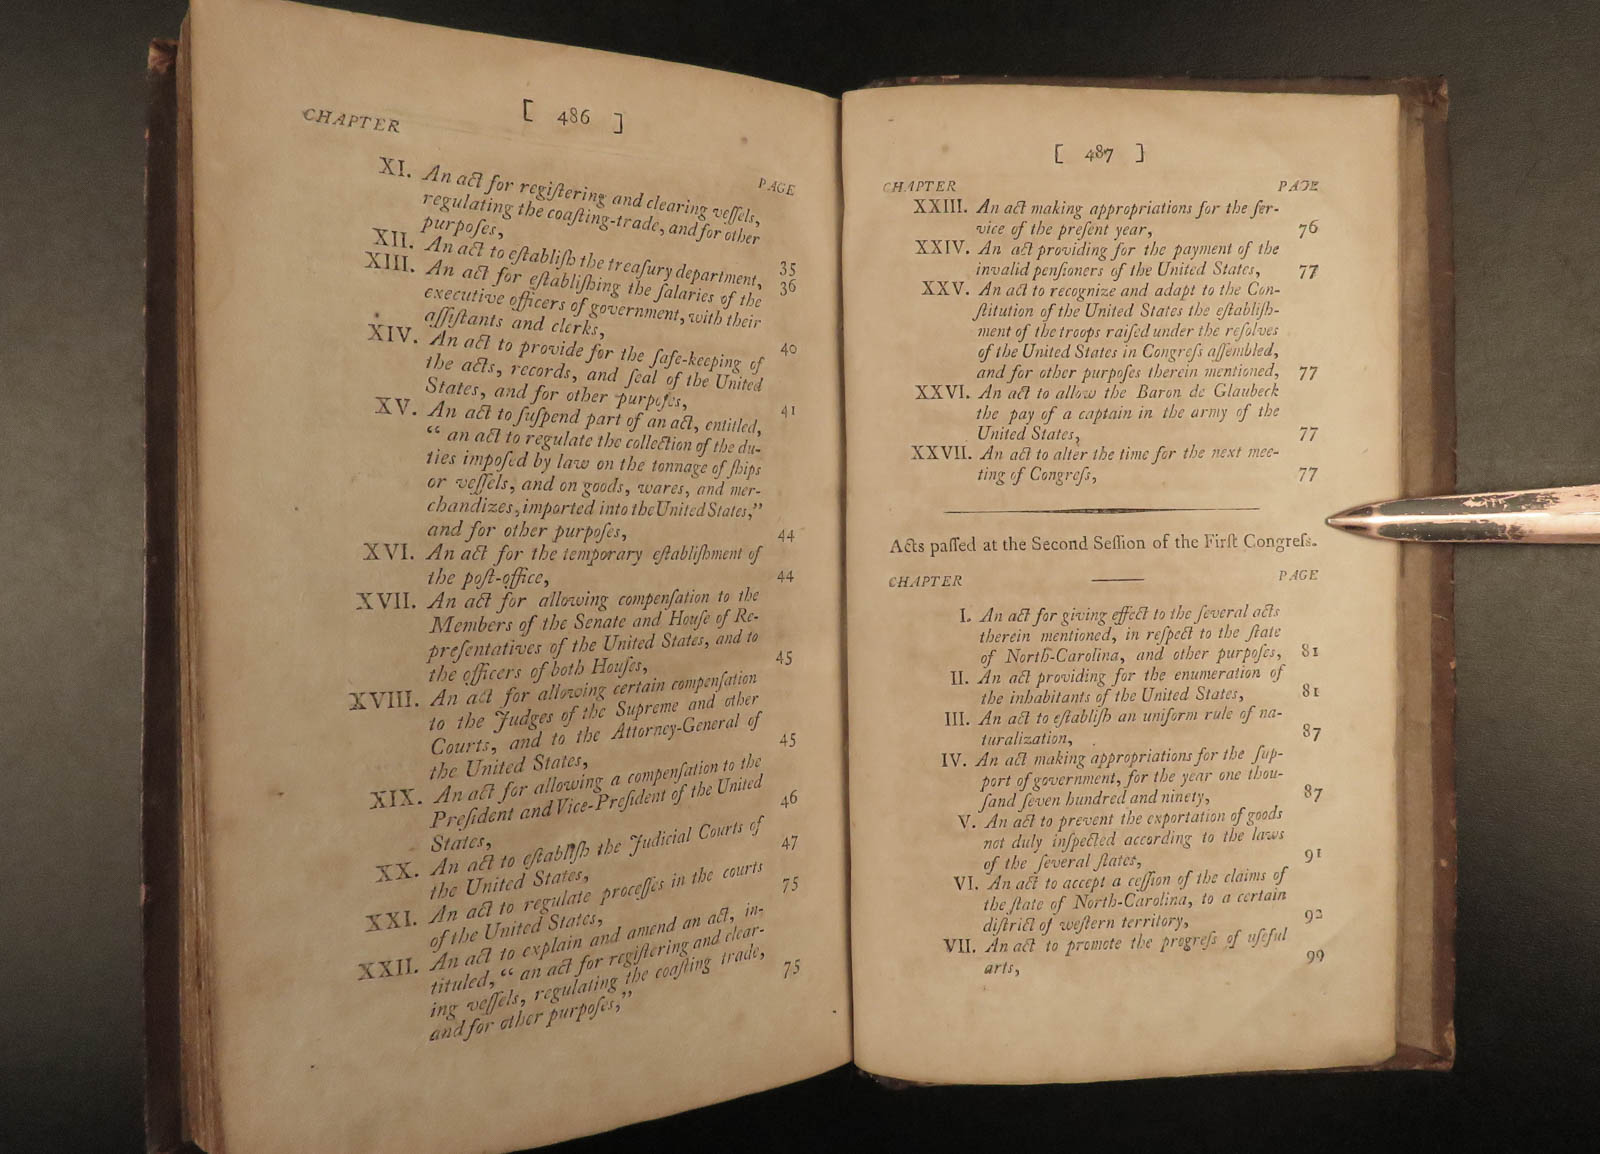 [ 486 ]
CHAPTER
PAGE
XI. An act for regiſtering and clearing veſſels,
regulating the coaſting-trade, and for other
purpoſes, 35
XII. An act to eſtabliſh the treaſury department, 36
XIII. An act for eſtabliſhing the ſalaries of the
executive officers of government, with their
aſſiſtants and clerks, 40
XIV. An act to provide for the ſafe-keeping of
the acts, records, and ſeal of the United
States, and for other purpoſes, 41
XV. An act to ſuſpend part of an act, entitled,
“ an act to regulate the collection of the du-
ties impoſed by law on the tonnage of ſhips
or veſſels, and on goods, wares, and mer-
chandizes, imported into the United States,”
and for other purpoſes, 44
XVI. An act for the temporary eſtabliſhment of
the poſt-office, 44
XVII. An act for allowing compenſation to the
Members of the Senate and Houſe of Re-
preſentatives of the United States, and to
the officers of both Houſes, 45
XVIII. An act for allowing certain compenſation
to the Judges of the Supreme and other
Courts, and to the Attorney-General of
the United States, 45
XIX. An act for allowing a compenſation to the
Preſident and Vice-Preſident of the United
States, 46
XX. An act to eſtabliſh the Judicial Courts of
the United States, 47
XXI. An act to regulate proceſſes in the courts
of the United States, 75
XXII. An act to explain and amend an act, in-
tituled, “ an act for regiſtering and clear-
ing veſſels, regulating the coaſting trade,
and for other purpoſes,” 75
[ 487 ]
CHAPTER PAGE
XXIII. An act making appropriations for the ſer-
vice of the preſent year, 76
XXIV. An act providing for the payment of the
invalid penſioners of the United States, 77
XXV. An act to recognize and adapt to the Con-
ſtitution of the United States the eſtabliſh-
ment of the troops raiſed under the reſolves
of the United States in Congreſs aſſembled,
and for other purpoſes therein mentioned, 77
XXVI. An act to allow the Baron de Glaubeck
the pay of a captain in the army of the
United States, 77
XXVII. An act to alter the time for the next mee-
ting of Congreſs, 77
Acts paſſed at the Second Seſſion of the Firſt Congreſs.
CHAPTER PAGE
I. An act for giving effect to the ſeveral acts
therein mentioned, in reſpect to the ſtate
of North-Carolina, and other purpoſes, 81
II. An act providing for the enumeration of
the inhabitants of the United States, 81
III. An act to eſtabliſh an uniform rule of na-
turalization, 87
IV. An act making appropriations for the ſup-
port of government, for the year one thou-
ſand ſeven hundred and ninety, 87
V. An act to prevent the exportation of goods
not duly inſpected according to the laws
of the ſeveral ſtates, 91
VI. An act to accept a ceſſion of the claims of
the ſtate of North-Carolina, to a certain
diſtrict of weſtern territory, 92
VII. An act to promote the progreſs of uſeful
arts, 99